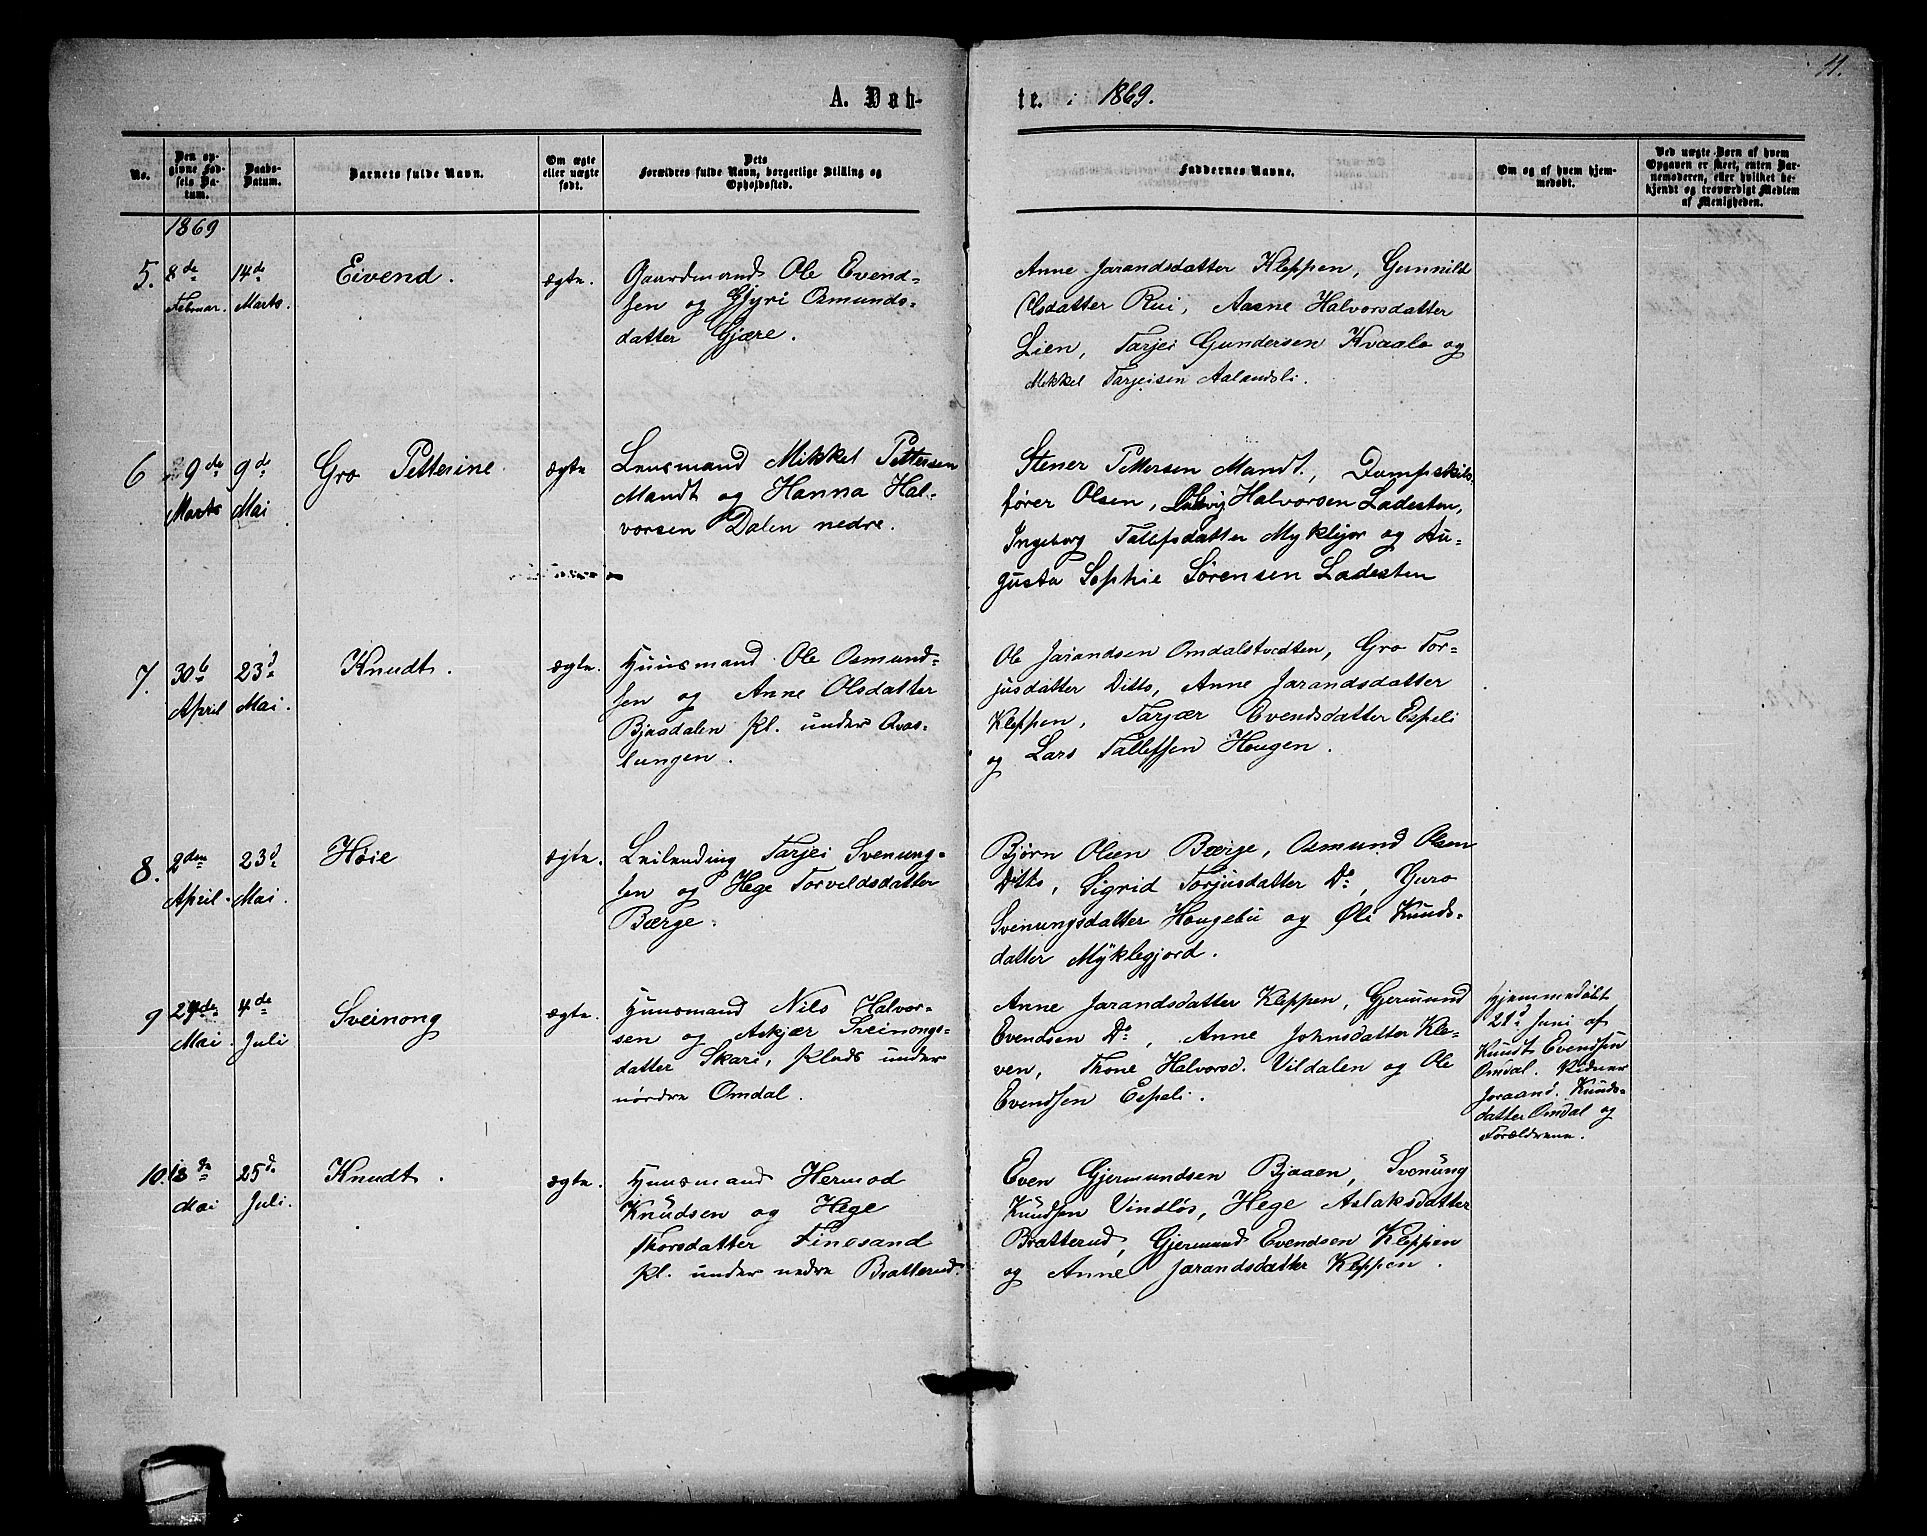 11.
A. Døb-
te. 1869.
No.
Den op-
givne Fød-
sels Da-
tum.
Daabs-
Datum.
Barnets fulde Navn.
Om ægte
eller uægte
født.
Dets
Forældres fulde Navn, borgerlige Stilling og
Opholdssted.
Faddernes Navne.
Om og af hvem hjem-
medøbt.
Ved uægte Børn af hvem
Opgaven er skeet, enten Bar-
nemoderen, eller hvilket be-
kjendt og troværdigt Medlem
af Menigheden.
1869
5.
8de
Februar.
14de
Marts.
Eivend.
ægte.
Gaardmand Ole Evend-
sen og Gjyri Osmunds-
datter Gjære.
Anne Jarandsdatter Kleppen, Gunnild
Olsdatter Rui, Aasne Halvorsdatter
Lien, Tarjei Gundersen Kvaale og
Mikkel Tarjeisen Aalandsli.
6
9de
Marts
9de
Mai
Gro Petterine
ægte
Lensmand Mikkel Pettersen
Mandt og Hanna Hal-
vorsen Dalen nedre.
Stener Pettersen Mandt, Dampskibs
fører Olsen, Halvorsen Ladesten,
Ingeborg Tallefsdatter Myklejor og Au-
gusta Sophie Sørensen Ladesten
7.
30te
April
23d
Mai.
Knudt.
ægte.
Huusmand Ole Osmund-
sen og Anne Olsdatter
Bjaadalen Pl. under Aas-
lungen.
Ole Jarandsen Omdalstvedten, Gro Tor-
jusdatter Ditto, Anne Jarandsdatter
Kleppen, Tarjær Evendsdatter Espeli
og Lars Tallefsen Hougen.
8.
2den
April.
23d
Mai.
Høie
ægte.
Leilending Tarjei Svenung-
sen og Hege Torveldsdatter
Børge.
Bjørn Olsen Børge, Osmund Olsen
Ditto, Sigrid Torjusdatter Do, Guro
Svenungsdatter Hougebu og Øli Knuds-
datter Myklegjord.
9
29de
Mai.
4de
Juli
Sveinong
ægte.
Huusmand Nils Halvor-
sen og Askjær Sveinongs-
datter Skari, Plads under
nørdre Omdal.
Anne Jarandsdatter Kleppen, Gjermund
Evendsen Do, Anne Johnsdatter Kle-
ven, Thone Halvorsd. Vildalen og Ole
Evendsen Espeli.
Hjemmedøbt
21d Juni af
Knudt Evendsen
Omdal. Vidner
Joraand Knuds-
datter Omdal og
Forældrene.
10.
13de
Mai
25d
Juli.
Knudt.
ægte.
Huusmand Hermod
Knudsen og Hege
Thorsdatter Finesand
Pl. under nedre Bratterud.
Even Gjermundsen Bjaaen, Svenung
Knudsen Vindløs, Hege Aslaksdatter
Bratterud, Gjermund Evendsen Kleppen
og Anne Jarandsdatter Kleppen.